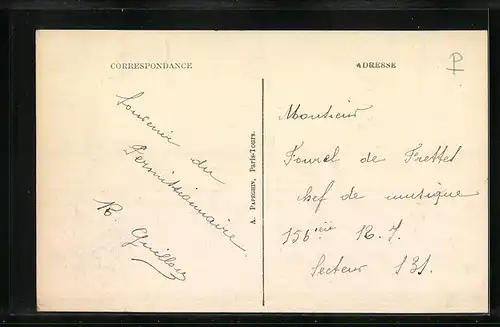 CORRESPONDANCE
ADRESSE
P
Souvenir du
Permittionnaire
R. Guillou
A. Papeghin, Paris-Tours.
Montieur
Fourel de Frettet
chef de mutique
156ième R. I.
Secteur 131.